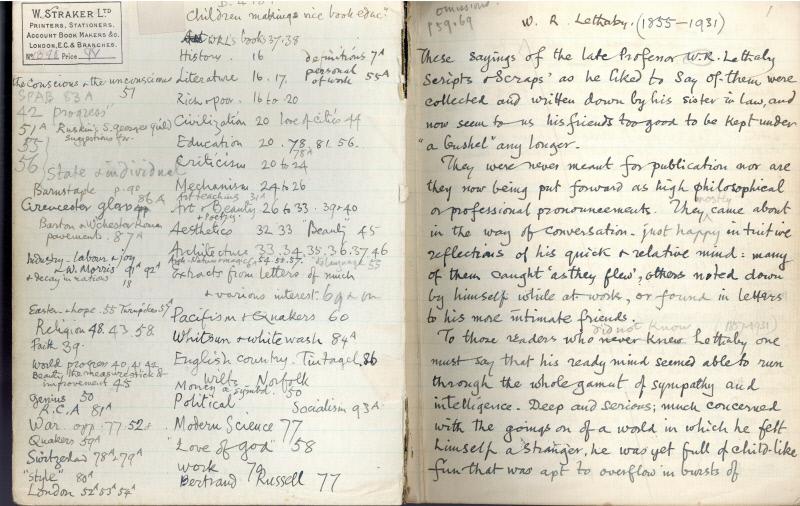 W. STRAKER LTD
PRINTERS, STATIONERS,
ACCOUNT BOOK MAKERS &c.
LONDON, E.C. & BRANCHES.
Price
Children makings nice book educ
WRL's books 37.38
History. 16 definitions 7A
the Conscious & the unconscious 57
Literature 16.17. personal of work 55A
SPAB 83A
Rich & poor. 16 to 20
42 progress
51A Ruskin S. Georges guild
suggestions for
Civilization 20 love of cities 44
55
Education 20. 78, 81. 56.
78A
56
Criticism 20 to 24
State & individual
Mechanism 24 to 26
Barnstaple p. 90
Art teaching 31A
86A
Cirencester glass
Art & Beauty 26 to 33. 39 & 40
+ Poetry
Barton & Wichester Roman
pavements. 87A
Aesthetics 32 33 "Beauty" 45
Architecture 33, 34, 35, 36, 37, 46
Industry - labour & joy
W. Morris 91A 92A
& decay in nation 18
Extracts from letters of much
& various interest: 69 & on
Easter & hope. 55
Pacifism & Quakers 60
Religion 48. 43 58.
Whitsun & whitewash 84A
Faith 39.
English country. Tintagel. 86
World progress 40, 41 42
Wilts Norfolk
Beauty the measure stick &
improvement 45
Money a symbol. 50
Genius 50
Political Socialism 93A
R.C.A 81A
War. opp. 77. 52
Modern Science 77
Quakers 59A
"Love of god" 58
Switzerland 78A & 79A
work 79
"Style" 80A
Bertrand Russell 77
London 52A 53A 54A
omissions
p 59.69
W. R. Lethaby. (1855-1931)
These sayings of the late Professor W.R. Lethaby
Scripts & Scraps' as he liked to say of them were
collected and written down by his sister in law, and
now seem to us his friends too good to be kept under
"a bushel" any longer.
They were never meant for publication nor are
they now being put forward as high philosophical
or professional pronouncements. They mostly came about
in the way of conversation - just happy intuitive
reflections of his quick & relative mind: many
of them caught 'as they flew', others noted down
by himself while at work, or found in letters
to his more intimate friends.
did not know (1857-1931)
To those readers who never knew Lethaby one
must say that his ready mind seemed able to run
through the whole gamut of sympathy and
intelligence. Deep and serious; much concerned
with the goings on of a world in which he felt
himself a stranger, he was yet full of child-like
fun that was apt to overflow in bursts of